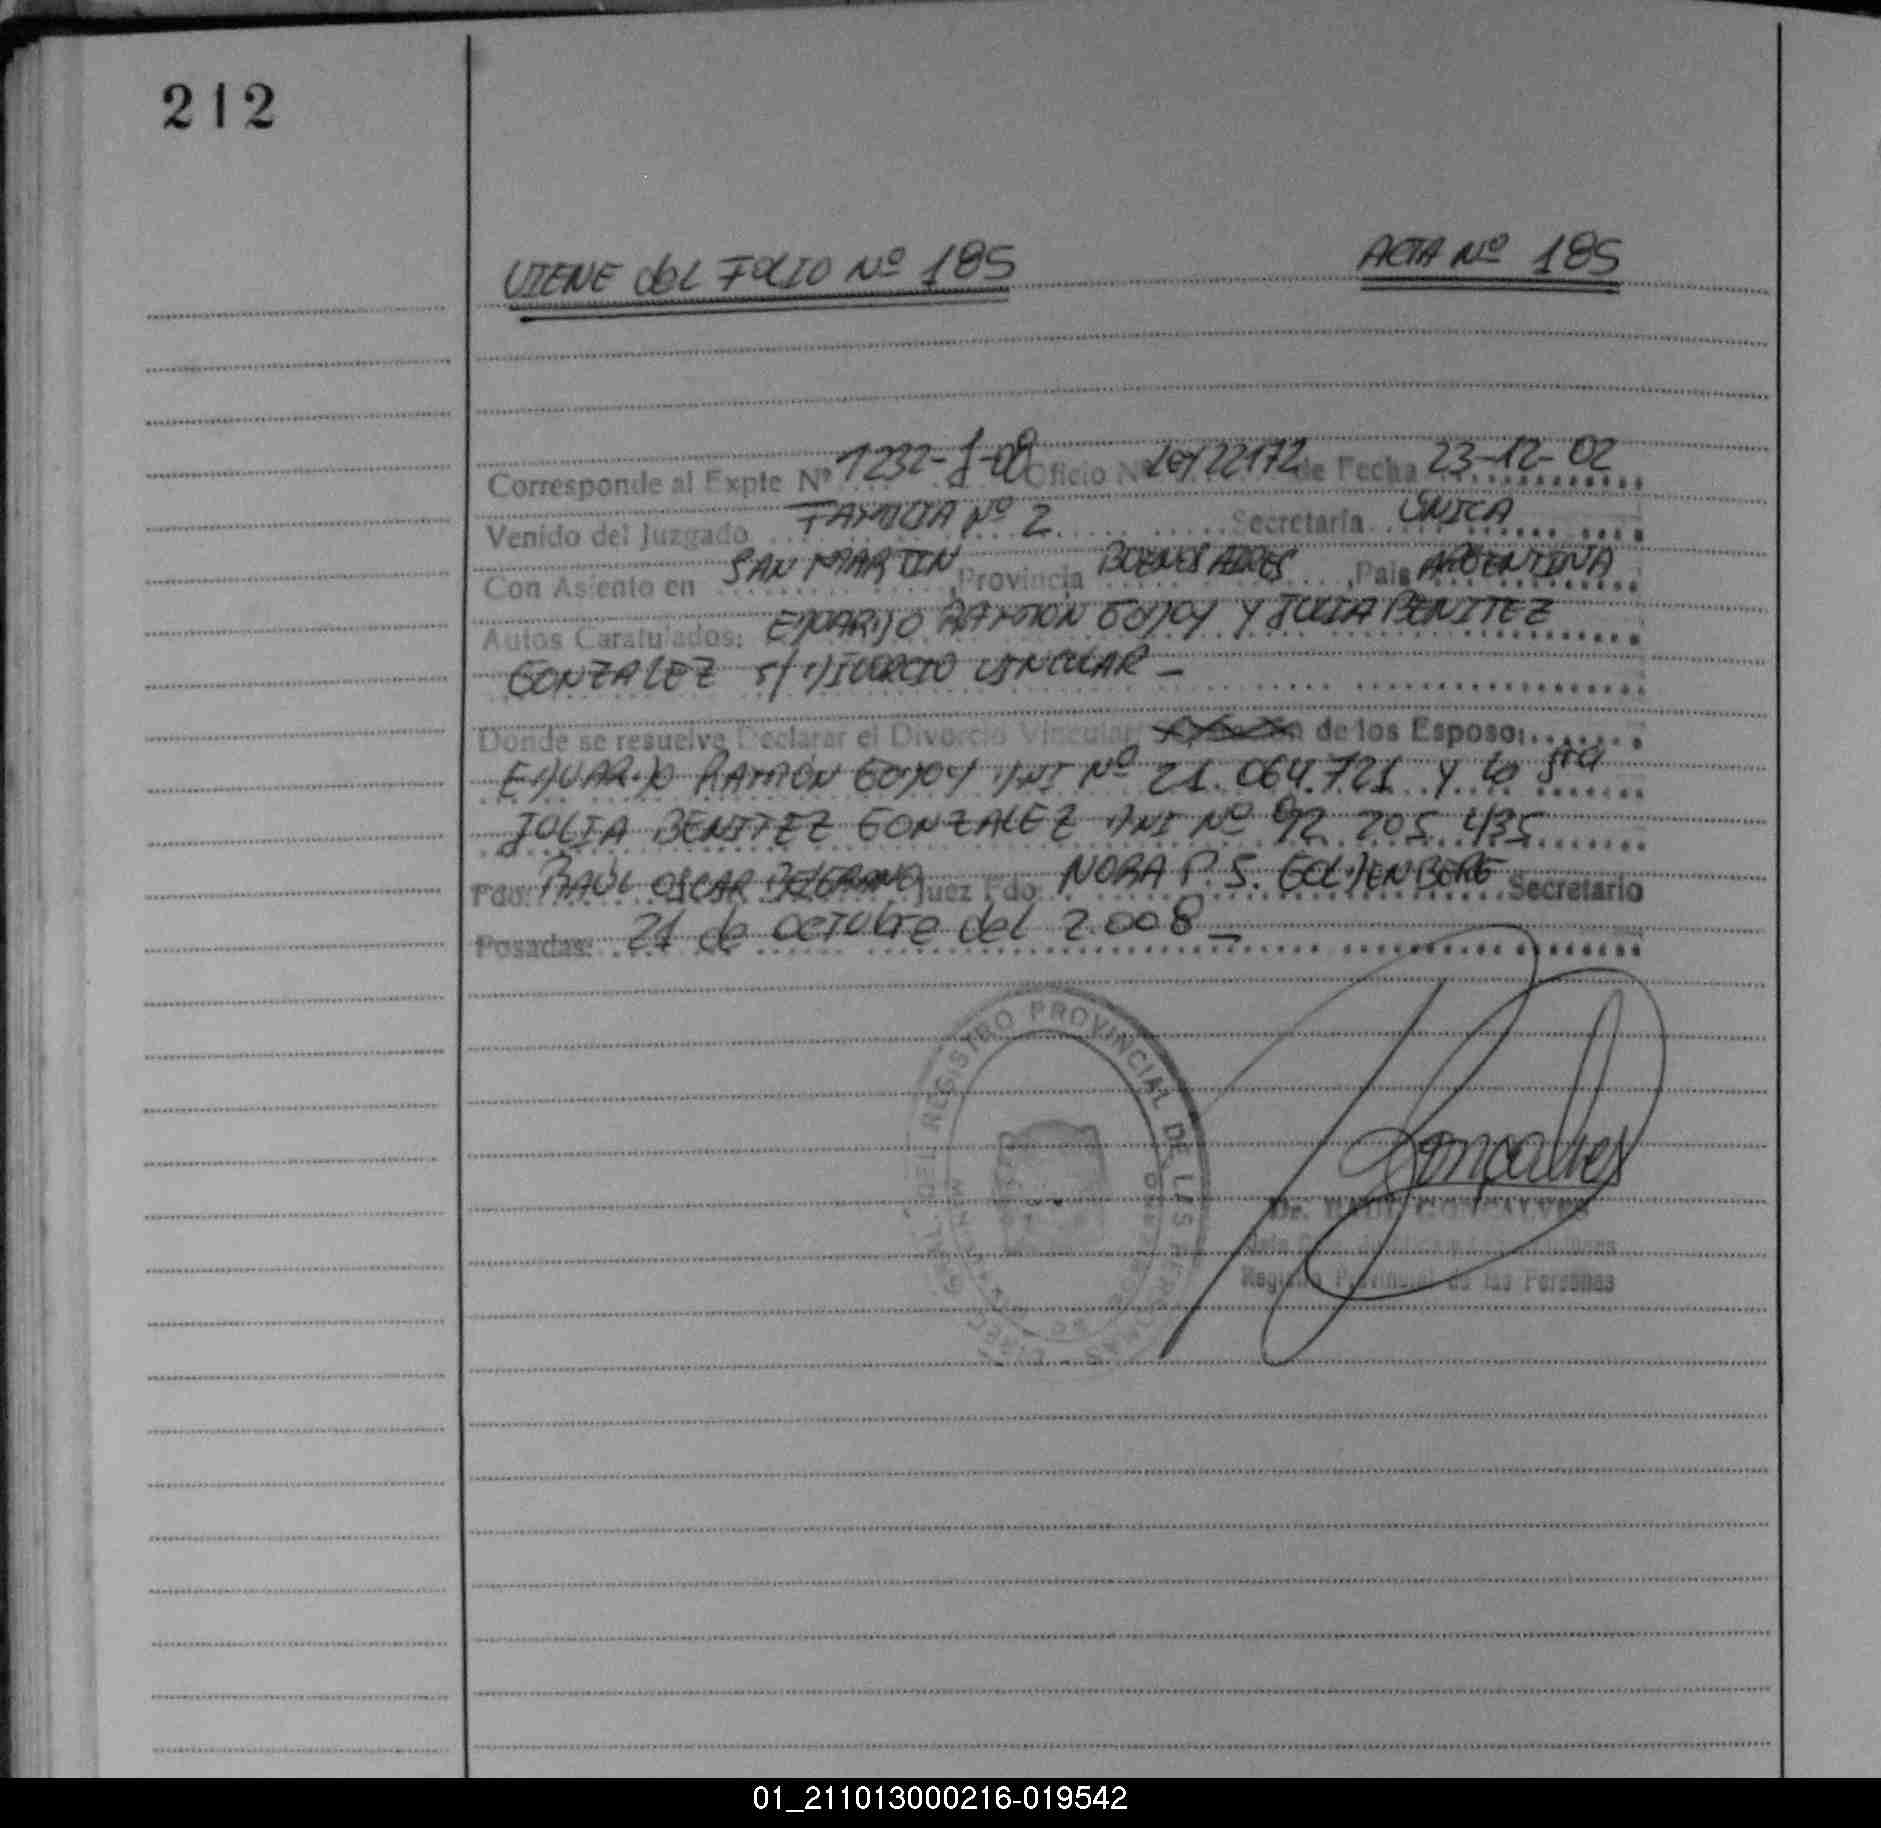 212
VIENE del FOLIO Nº 185 ACTA Nº 185
Corresponde al Expte Nº 1232-J-08 Oficio Nº Ley 22172 de Fecha 23-12-02
Venido del Juzgado FAMILIA Nº 2 Secretaría UNICA
Con Asiento en SAN MARTIN, Provincia BUENOS AIRES, Pais ARGENTINA
Autos Caratulados: EDUARDO RAMON GODOY Y JULIA BENITEZ
GONZALEZ s/ DIVORCIO VINCULAR -
Donde se resuelve Declarar el Divorcio Vincular de los Esposos
EDUARDO RAMON GODOY DNI Nº 21.064.721 y la sra
JULIA BENITEZ GONZALEZ DNI Nº 92.205.435
Fdo: RAUL OSCAR Juez Fdo: NORA P. S. GOLDENBERG Secretario
Posadas: 21 de octubre del 2.008 -
DIREC. GRAL. DEL REGISTRO PROVINCIAL DE LAS PERSONAS
Gonçalves
Dr. RAUL GONCALVES
Registro Provincial de las Personas
01_211013000216-019542